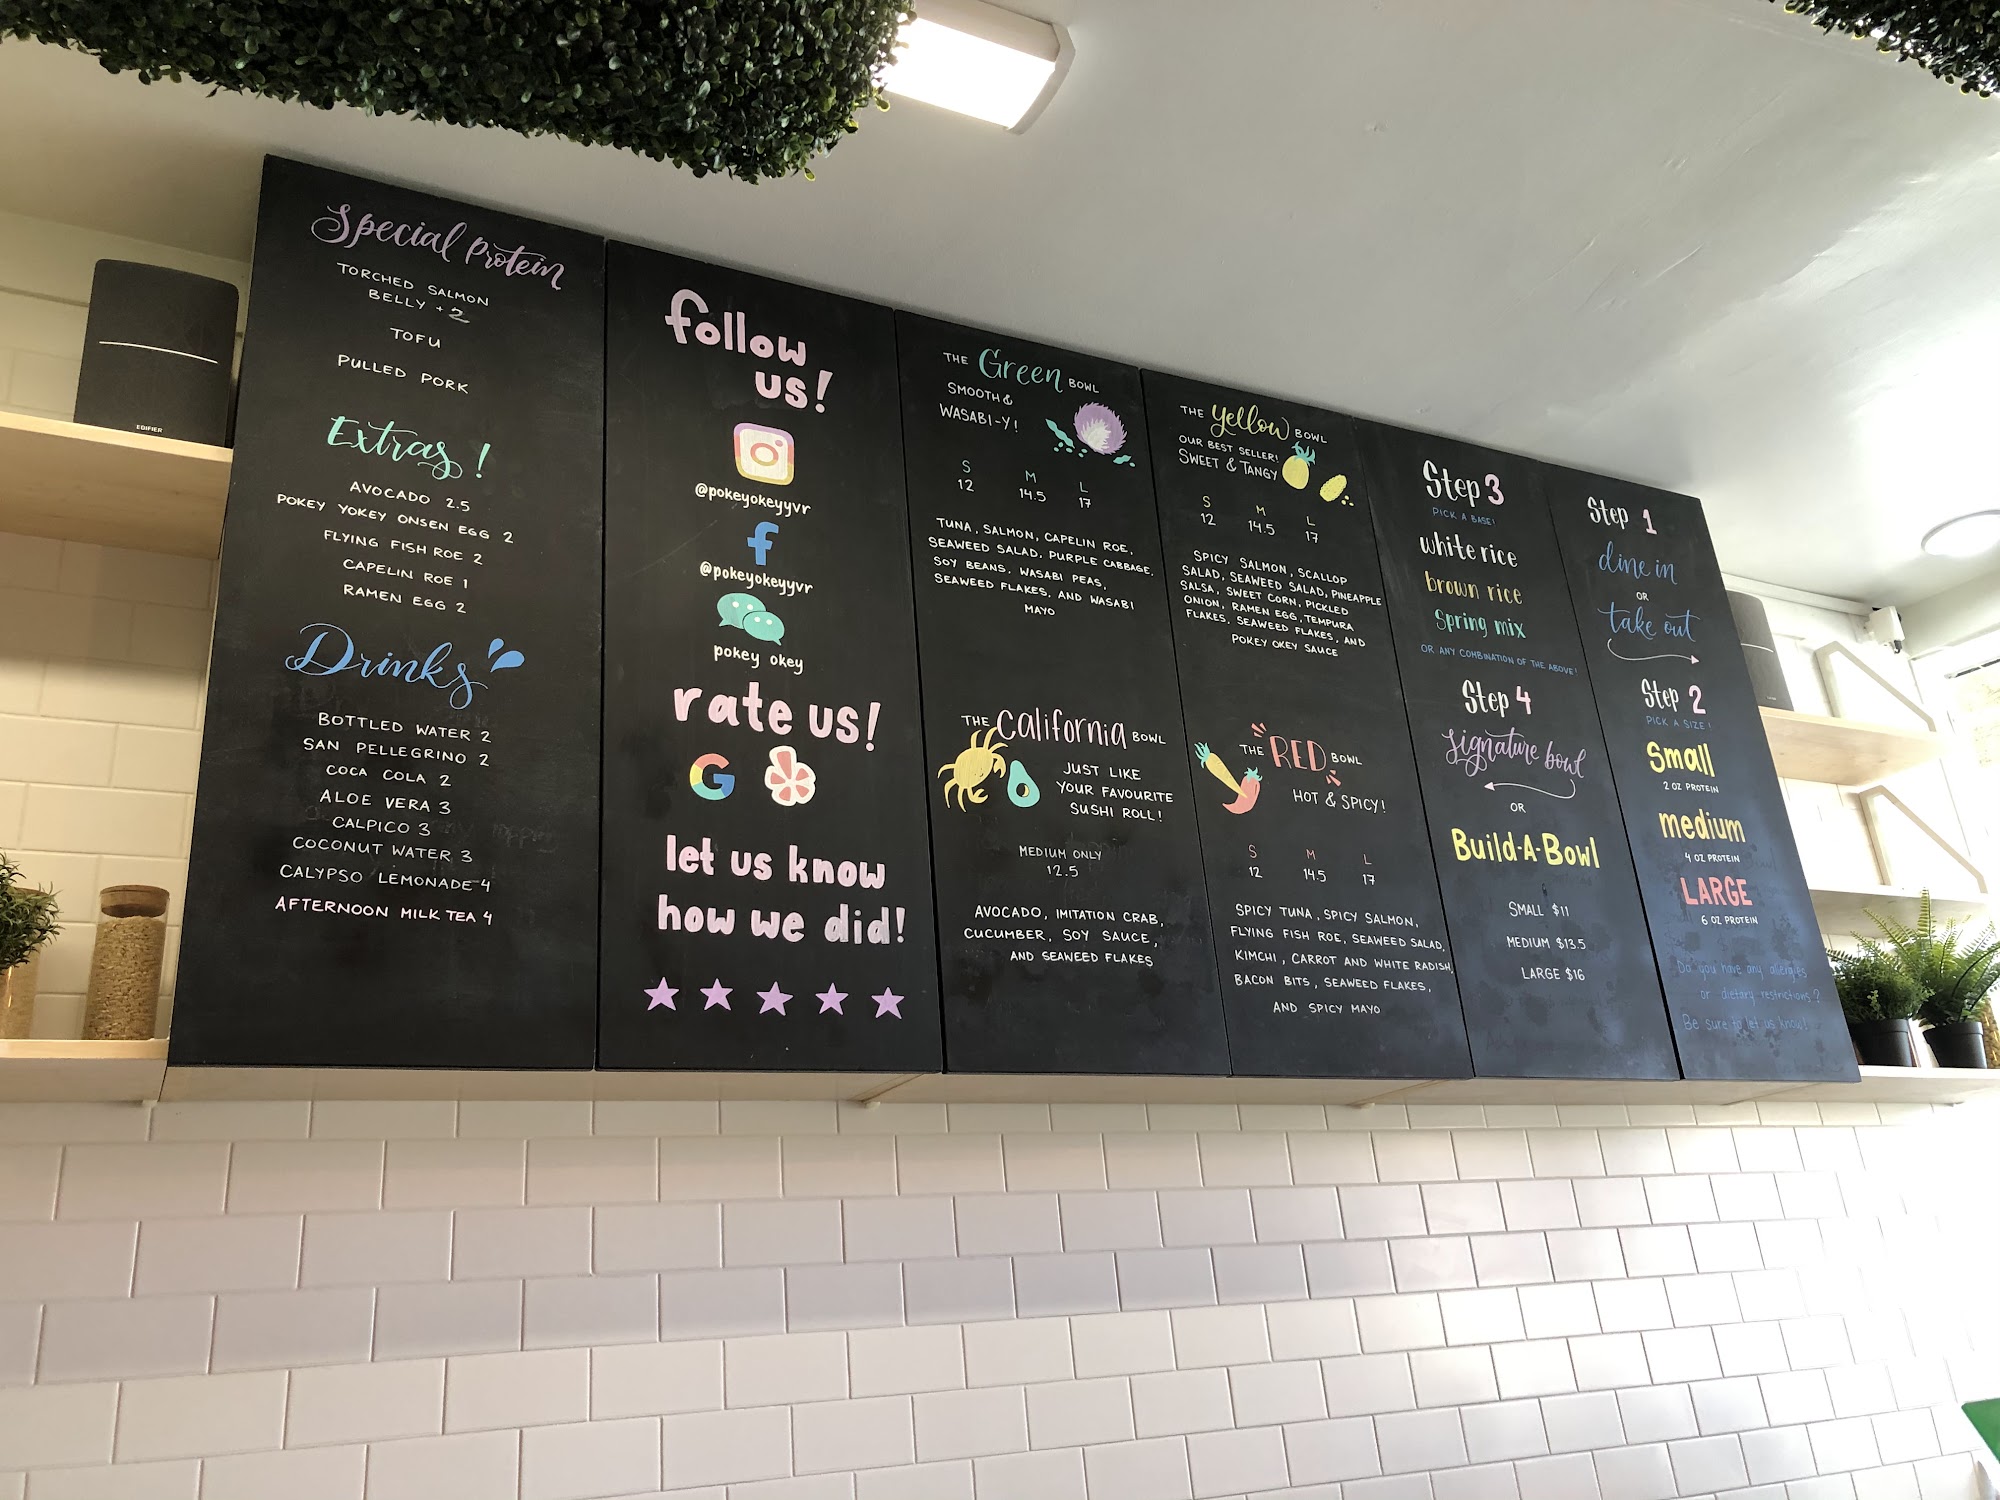 Special Protein
TORCHED SALMON
BELLY +2
TOFU
PULLED PORK
Extras!
AVOCADO 2.5
POKEY YOKEY ONSEN EGG 2
FLYING FISH ROE 2
CAPELIN ROE 1
RAMEN EGG 2
Drinks
BOTTLED WATER 2
SAN PELLEGRINO 2
COCA COLA 2
ALOE VERA 3
CALPICO 3
COCONUT WATER 3
CALYPSO LEMONADE 4
AFTERNOON MILK TEA 4
EDIFIER
follow
us!
@pokeyokeyyvr
f
@pokeyokeyyvr
pokey okey
rate us!
G
let us know
how we did!
THE Green BOWL
SMOOTH &
WASABI-Y!
S M L
12 14.5 17
TUNA, SALMON, CAPELIN ROE,
SEAWEED SALAD, PURPLE CABBAGE,
SOY BEANS, WASABI PEAS,
SEAWEED FLAKES, AND WASABI
MAYO
THE California BOWL
JUST LIKE
YOUR FAVOURITE
SUSHI ROLL!
MEDIUM ONLY
12.5
AVOCADO, IMITATION CRAB,
CUCUMBER, SOY SAUCE,
AND SEAWEED FLAKES
THE Yellow BOWL
OUR BEST SELLER!
SWEET & TANGY
S M L
12 14.5 17
SPICY SALMON, SCALLOP
SALAD, SEAWEED SALAD, PINEAPPLE
SALSA, SWEET CORN, PICKLED
ONION, RAMEN EGG, TEMPURA
FLAKES, SEAWEED FLAKES, AND
POKEY OKEY SAUCE
THE RED BOWL
HOT & SPICY!
S M L
12 14.5 17
SPICY TUNA, SPICY SALMON,
FLYING FISH ROE, SEAWEED SALAD,
KIMCHI, CARROT AND WHITE RADISH,
BACON BITS, SEAWEED FLAKES,
AND SPICY MAYO
Step 3
PICK A BASE!
white rice
brown rice
Spring mix
OR ANY COMBINATION OF THE ABOVE!
Step 4
signature bowl
OR
Build-A-Bowl
SMALL $11
MEDIUM $13.5
LARGE $16
Step 1
dine in
OR
take out
Step 2
PICK A SIZE!
Small
2 OZ PROTEIN
medium
4 OZ PROTEIN
LARGE
6 OZ PROTEIN
Do you have any allergies
or dietary restrictions?
Be sure to let us know!